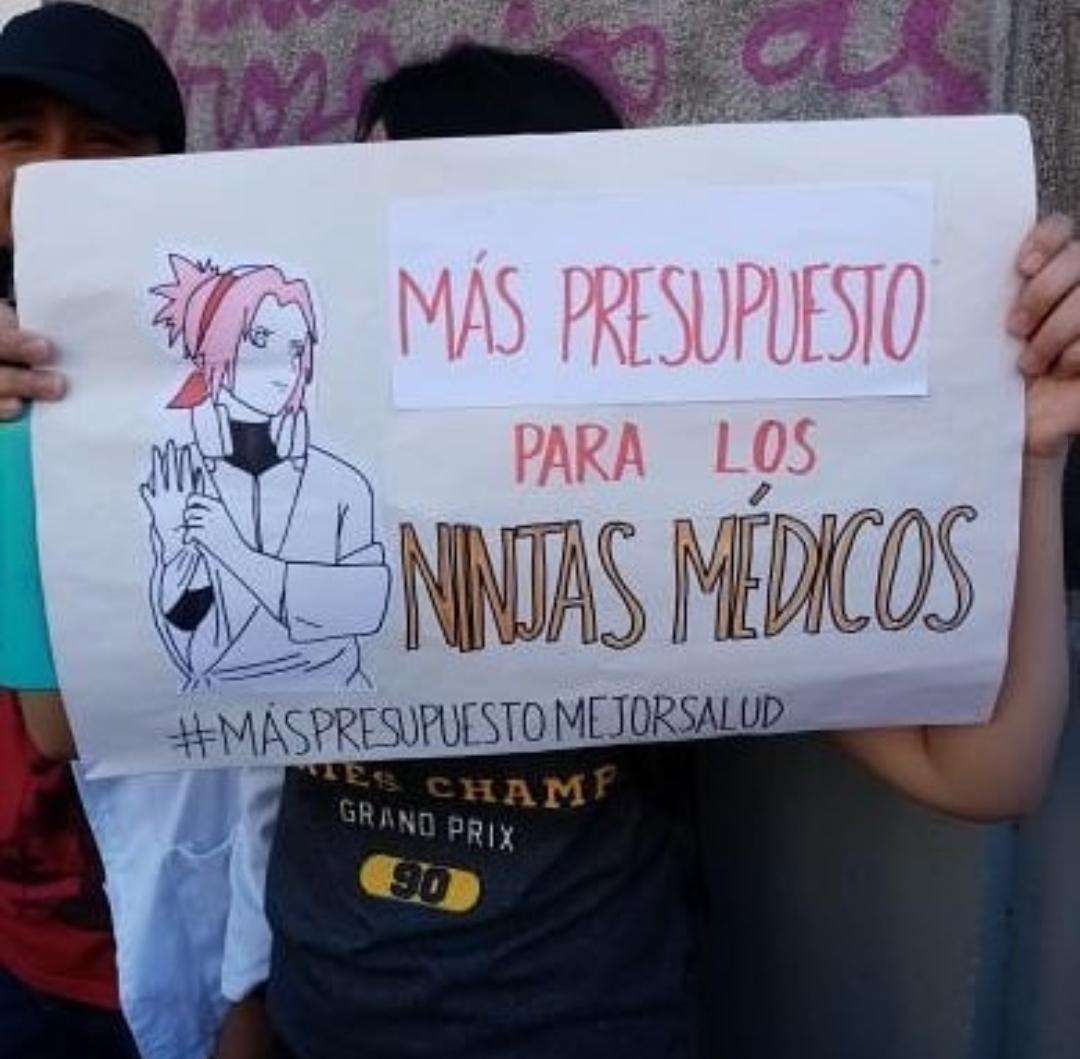 MÁS PRESUPUESTO
PARA LOS
NINJAS MÉDICOS
#MÁSPRESUPUESTOMEJORSALUD
CHAMP
GRAND PRIX
90